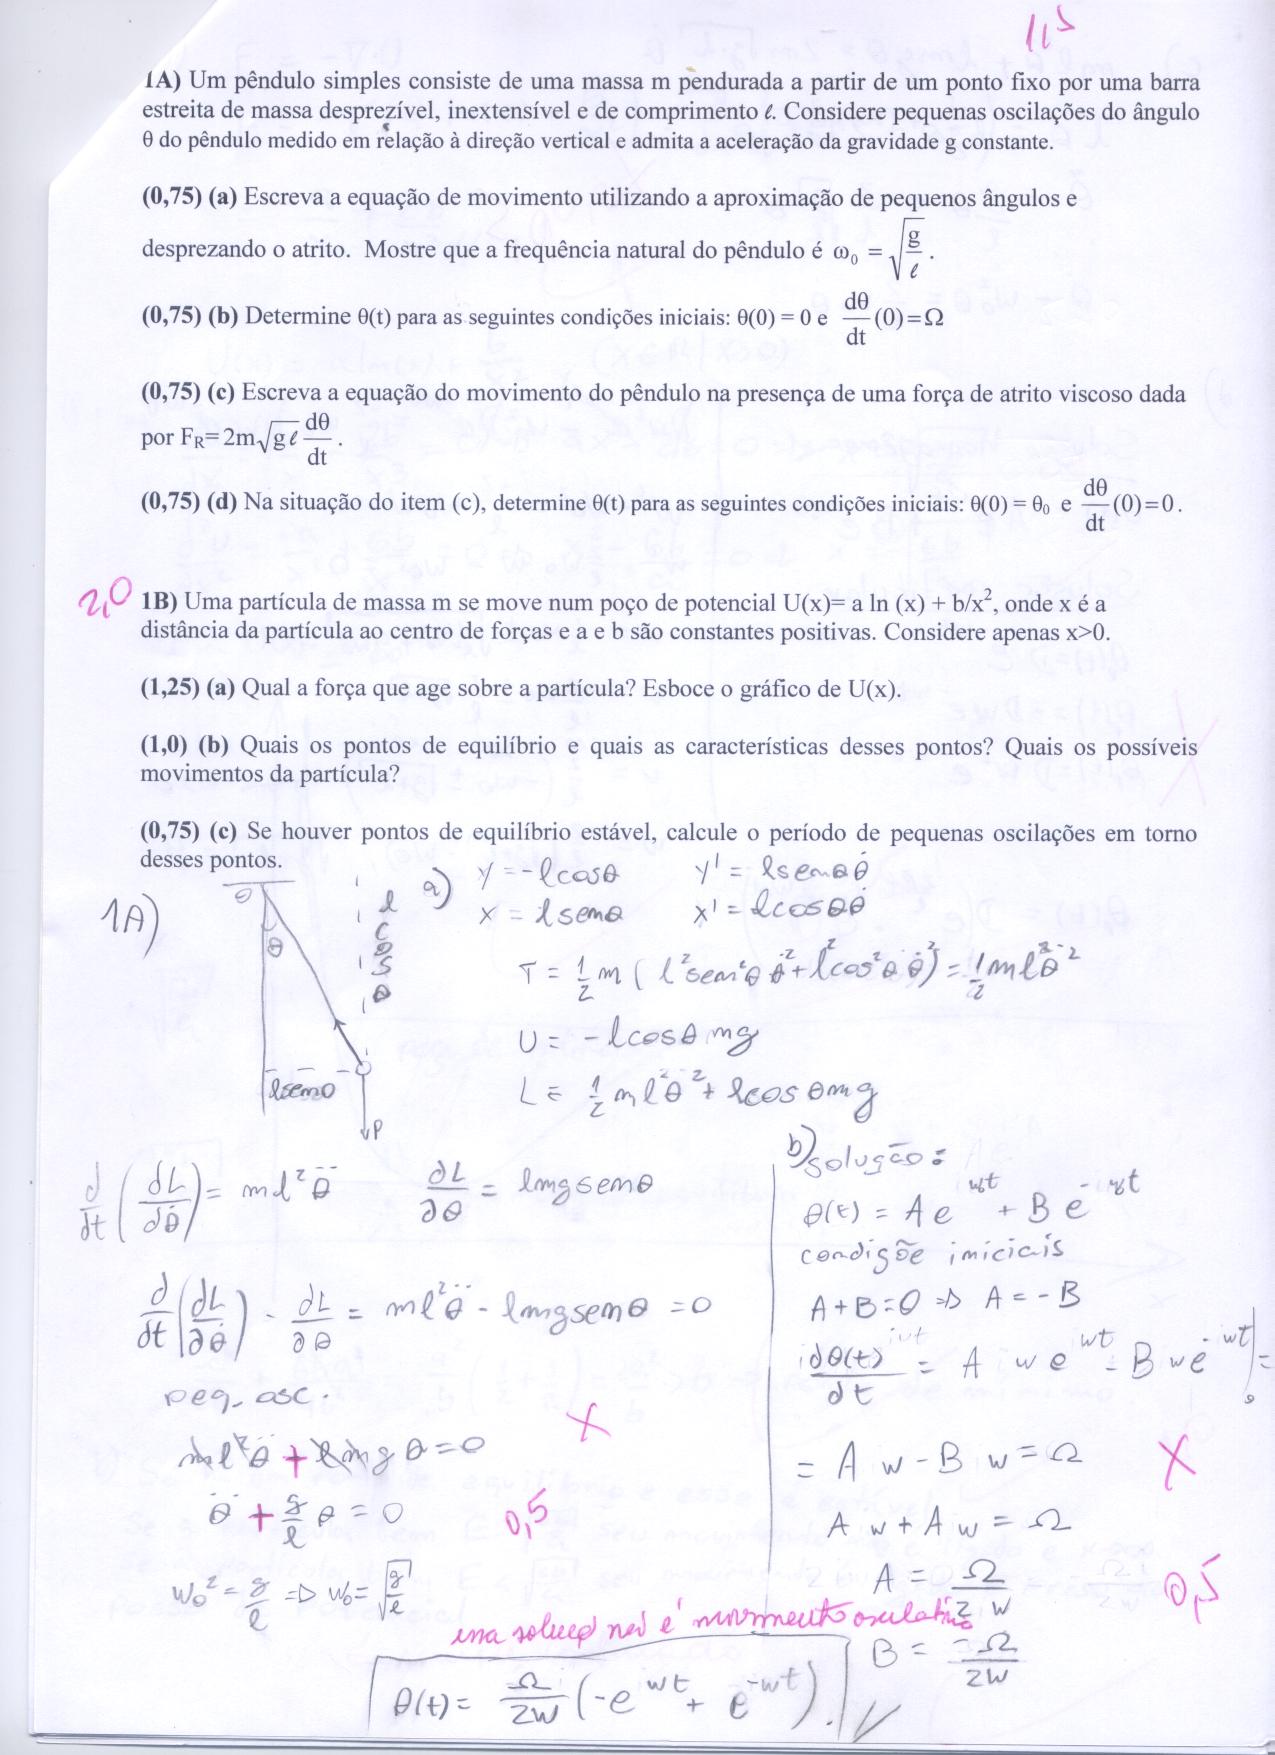 1,5
1A) Um pêndulo simples consiste de uma massa m pendurada a partir de um ponto fixo por uma barra
estreita de massa desprezível, inextensível e de comprimento ℓ. Considere pequenas oscilações do ângulo
θ do pêndulo medido em relação à direção vertical e admita a aceleração da gravidade g constante.
(0,75) (a) Escreva a equação de movimento utilizando a aproximação de pequenos ângulos e
desprezando o atrito. Mostre que a frequência natural do pêndulo é ω₀ = √(g/ℓ).
(0,75) (b) Determine θ(t) para as seguintes condições iniciais: θ(0) = 0 e dθ/dt (0)=Ω
(0,75) (c) Escreva a equação do movimento do pêndulo na presença de uma força de atrito viscoso dada
por F_R= 2m√(gℓ) dθ/dt.
(0,75) (d) Na situação do item (c), determine θ(t) para as seguintes condições iniciais: θ(0) = θ₀ e dθ/dt (0)=0.
2,0
1B) Uma partícula de massa m se move num poço de potencial U(x)= a ln (x) + b/x², onde x é a
distância da partícula ao centro de forças e a e b são constantes positivas. Considere apenas x>0.
(1,25) (a) Qual a força que age sobre a partícula? Esboce o gráfico de U(x).
(1,0) (b) Quais os pontos de equilíbrio e quais as características desses pontos? Quais os possíveis
movimentos da partícula?
(0,75) (c) Se houver pontos de equilíbrio estável, calcule o período de pequenas oscilações em torno
desses pontos.
1A)
θ
lcosθ
lsenθ
P
a) y = -lcosθ y' = lsenθ θ̇
x = lsenθ x' = lcosθ θ̇
T = 1/2 m (l²sen²θ θ̇² + l²cos²θ θ̇²) = 1/2 ml²θ̇²
U = -lcosθ mg
L = 1/2 ml²θ̇² + lcosθ mg
d/dt (∂L/∂θ̇) = ml²θ̈ ∂L/∂θ = lmg senθ
d/dt (∂L/∂θ̇) - ∂L/∂θ = ml²θ̈ - lmg senθ = 0
peq. osc.
ml²θ̈ + lmg θ = 0
X
θ̈ + g/l θ = 0
0,5
w₀² = g/l => w₀ = √(g/l)
b) solução:
θ(t) = A e^(wt) + B e^(-wt)
condiçõe iniciais
A+B=0 => A = -B
dθ(t)/dt = A w e^(wt) - B w e^(-wt) |₀ =
= A w - B w = Ω
X
A w + A w = Ω
A = Ω/2w
0,5
B = -Ω/2w
essa solução não é movimento oscilatório
θ(t) = Ω/2w (-e^(wt) + e^(-wt)).